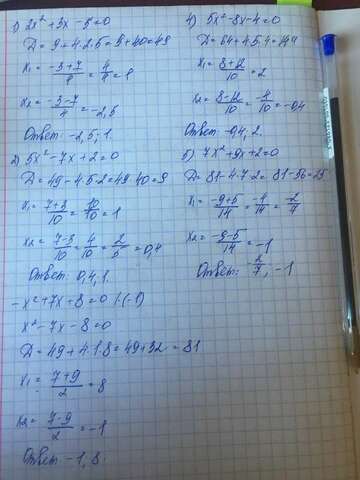 1) 2x² + 3x - 5 = 0
D = 9 + 4·2·5 = 9 + 40 = 49
x₁ = (-3+7)/4 = 4/4 = 1
x₂ = (-3-7)/4 = -2,5
Ответ: -2,5; 1.
2) 5x² - 7x + 2 = 0
D = 49 - 4·5·2 = 49-40 = 9
x₁ = (7+3)/10 = 10/10 = 1
x₂ = (7-3)/10 = 4/10 = 2/5 = 0,4
Ответ: 0,4; 1.
-x² + 7x + 8 = 0 /·(-1)
x² - 7x - 8 = 0
D = 49 + 4·1·8 = 49 + 32 = 81
x₁ = (7+9)/2 = 8
x₂ = (7-9)/2 = -1
Ответ -1, 8
4) 5x² - 8x - 4 = 0
D = 64 + 4·5·4 = 144
x₁ = (8+12)/10 = 2
x₂ = (8-12)/10 = -4/10 = -0,4
Ответ: -0,4; 2.
5) 7x² + 9x + 2 = 0
D = 81 - 4·7·2 = 81 - 56 = 25
x₁ = (-9+5)/14 = -4/14 = -2/7
x₂ = (-9-5)/14 = -1
Ответ: -2/7, -1